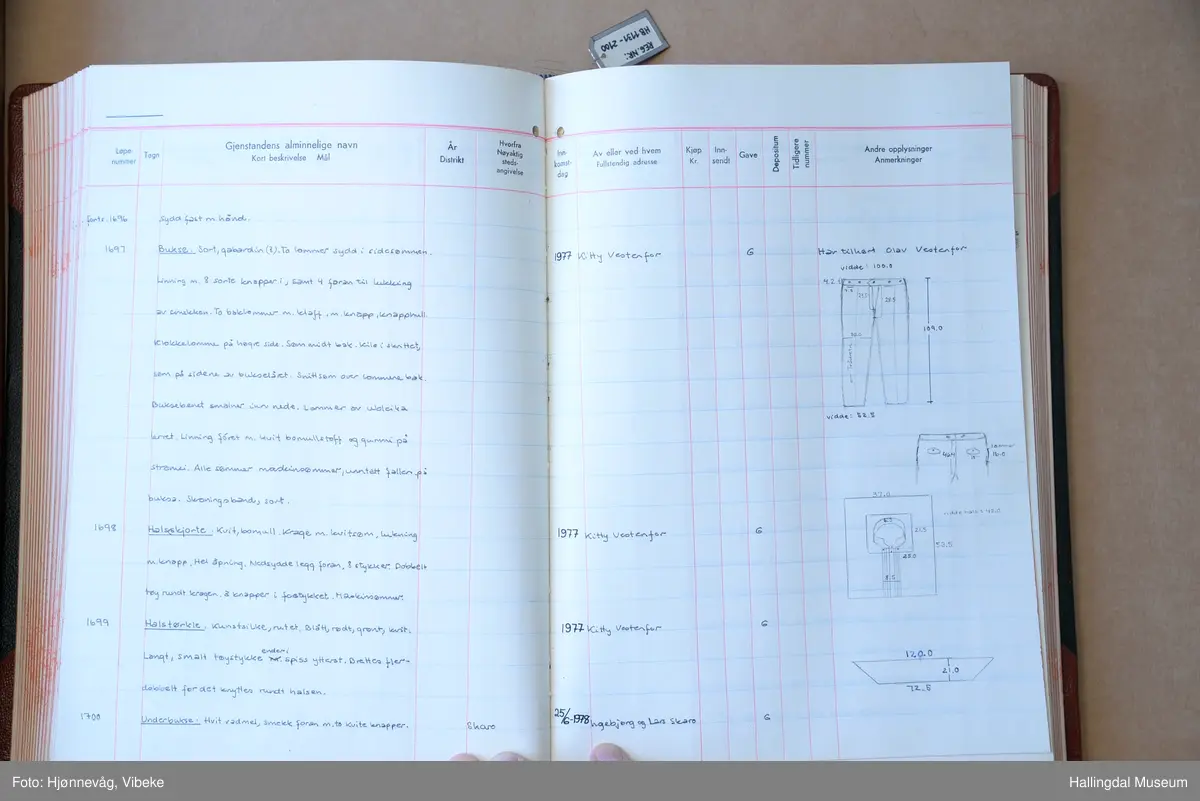 REG.NR:
HB 1131 - 2100
Løpe-
nummer
Tegn
Gjenstandens alminnelige navn
Kort beskrivelse Mål
År
Distrikt
Hvorfra
Nøyaktig
steds-
angivelse
Inn-
komst-
dag
Av eller ved hvem
Fullstendig adresse
Kjøp
Kr.
Inn-
sendt
Gave
Depositum
Tidligere
nummer
Andre opplysninger
Anmerkninger
forts. 1696 sydd fast m. hånd.
1697 Bukse: Sort, gabardin (?). To lommer sydd i sidesømmen. 1977 Kitty Vestenfor G Har tilhørt Olav Vestenfor
Linning m. 8 sorte knapper i, samt 4 foran til lukking
av smekken. To baklommer m. klaff, m. knapp, knapphull.
Klokkelomme på høgre side. Søm midt bak. Kile i skrittet,
søm på sidene av bukselåret. Snittsøm over lommene bak.
Buksebenet smalner inn nede. Lommer av ubleika
lerret. Linning fôret m. kvit bomullstoff og gummi på
strømei. Alle sømmer maskinsømmer, unntatt fallen på
buksa. Skoningsbånd, sort.
vidde: 100.0
4.2
109.0
vidde: 52.5
1698 Halsskjorte: Kvit, bomull. Krage m. kvitsøm, lukning 1977 Kitty Vestenfor G
m. knapp, Hel åpning. Nedsydde legg foran, 8 stykker. Dobbelt
tøy rundt kragen. 3 knapper i forstykket. Maskinsømmer.
37.0
21.5
53.5
25.0
8.5
1699 Halstørkle: Kunstsilke, rutet. Blått, rødt, grønt, kvit. 1977 Kitty Vestenfor G
Langt, smalt tøystykke ender i spiss ytterst. Brettes fler-
dobbelt før det knyttes rundt halsen.
120.0
21.0
72.5
1700 Underbukse: Hvit vadmel, smekk foran m. to kvite knapper. Skaro 25/6-1978 Ingebjørg og Lars Skaro G
Foto: Hjønnevåg, Vibeke
Hallingdal Museum